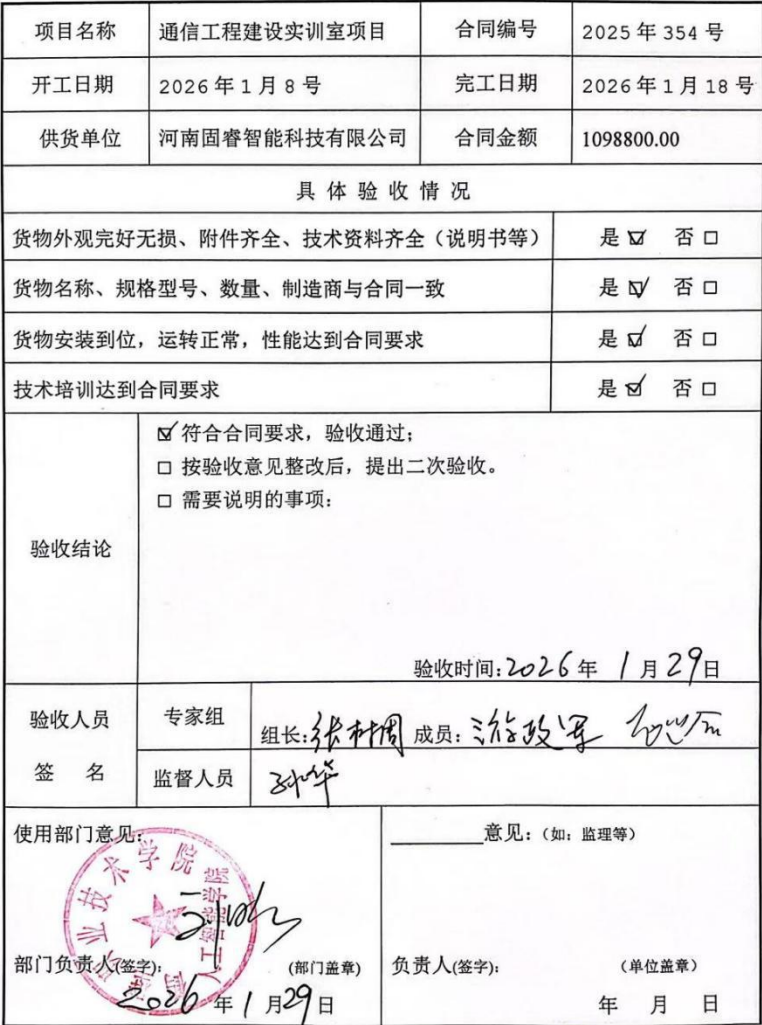 项目名称 通信工程建设实训室项目 合同编号 2025年354号
开工日期 2026年1月8号 完工日期 2026年1月18号
供货单位 河南固睿智能科技有限公司 合同金额 1098800.00
具体验收情况
货物外观完好无损、附件齐全、技术资料齐全（说明书等） 是☑ 否□
货物名称、规格型号、数量、制造商与合同一致 是☑ 否□
货物安装到位，运转正常，性能达到合同要求 是☑ 否□
技术培训达到合同要求 是☑ 否□
☑符合合同要求，验收通过；
□按验收意见整改后，提出二次验收。
□需要说明的事项：
验收结论
验收时间：2026年1月29日
验收人员签名 专家组 组长：张材周 成员：游政军
监督人员
使用部门意见：
业技术学院
人工智能学院
部门负责人(签字)： (部门盖章)
2026年1月29日
意见：（如：监理等）
负责人(签字)： (单位盖章)
年 月 日